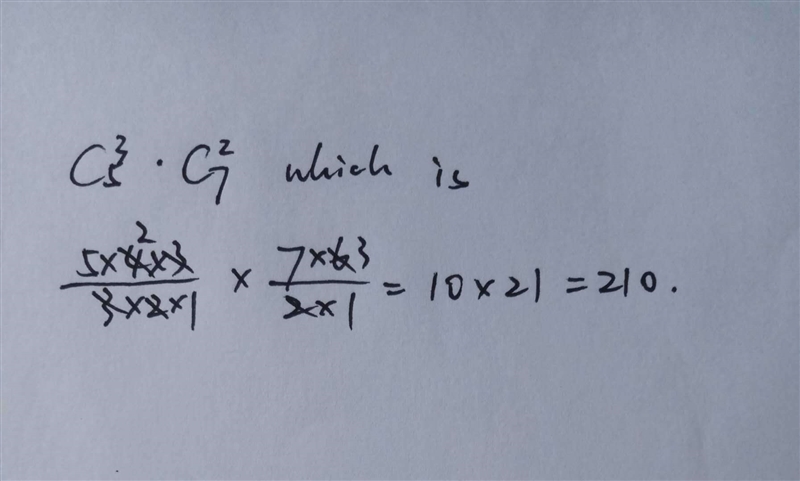 C₅³ · C₇² which is
(5×4̶²×3̶)/(3̶×2̶×1) × (7×6̶³)/(2̶×1) = 10×21 = 210.